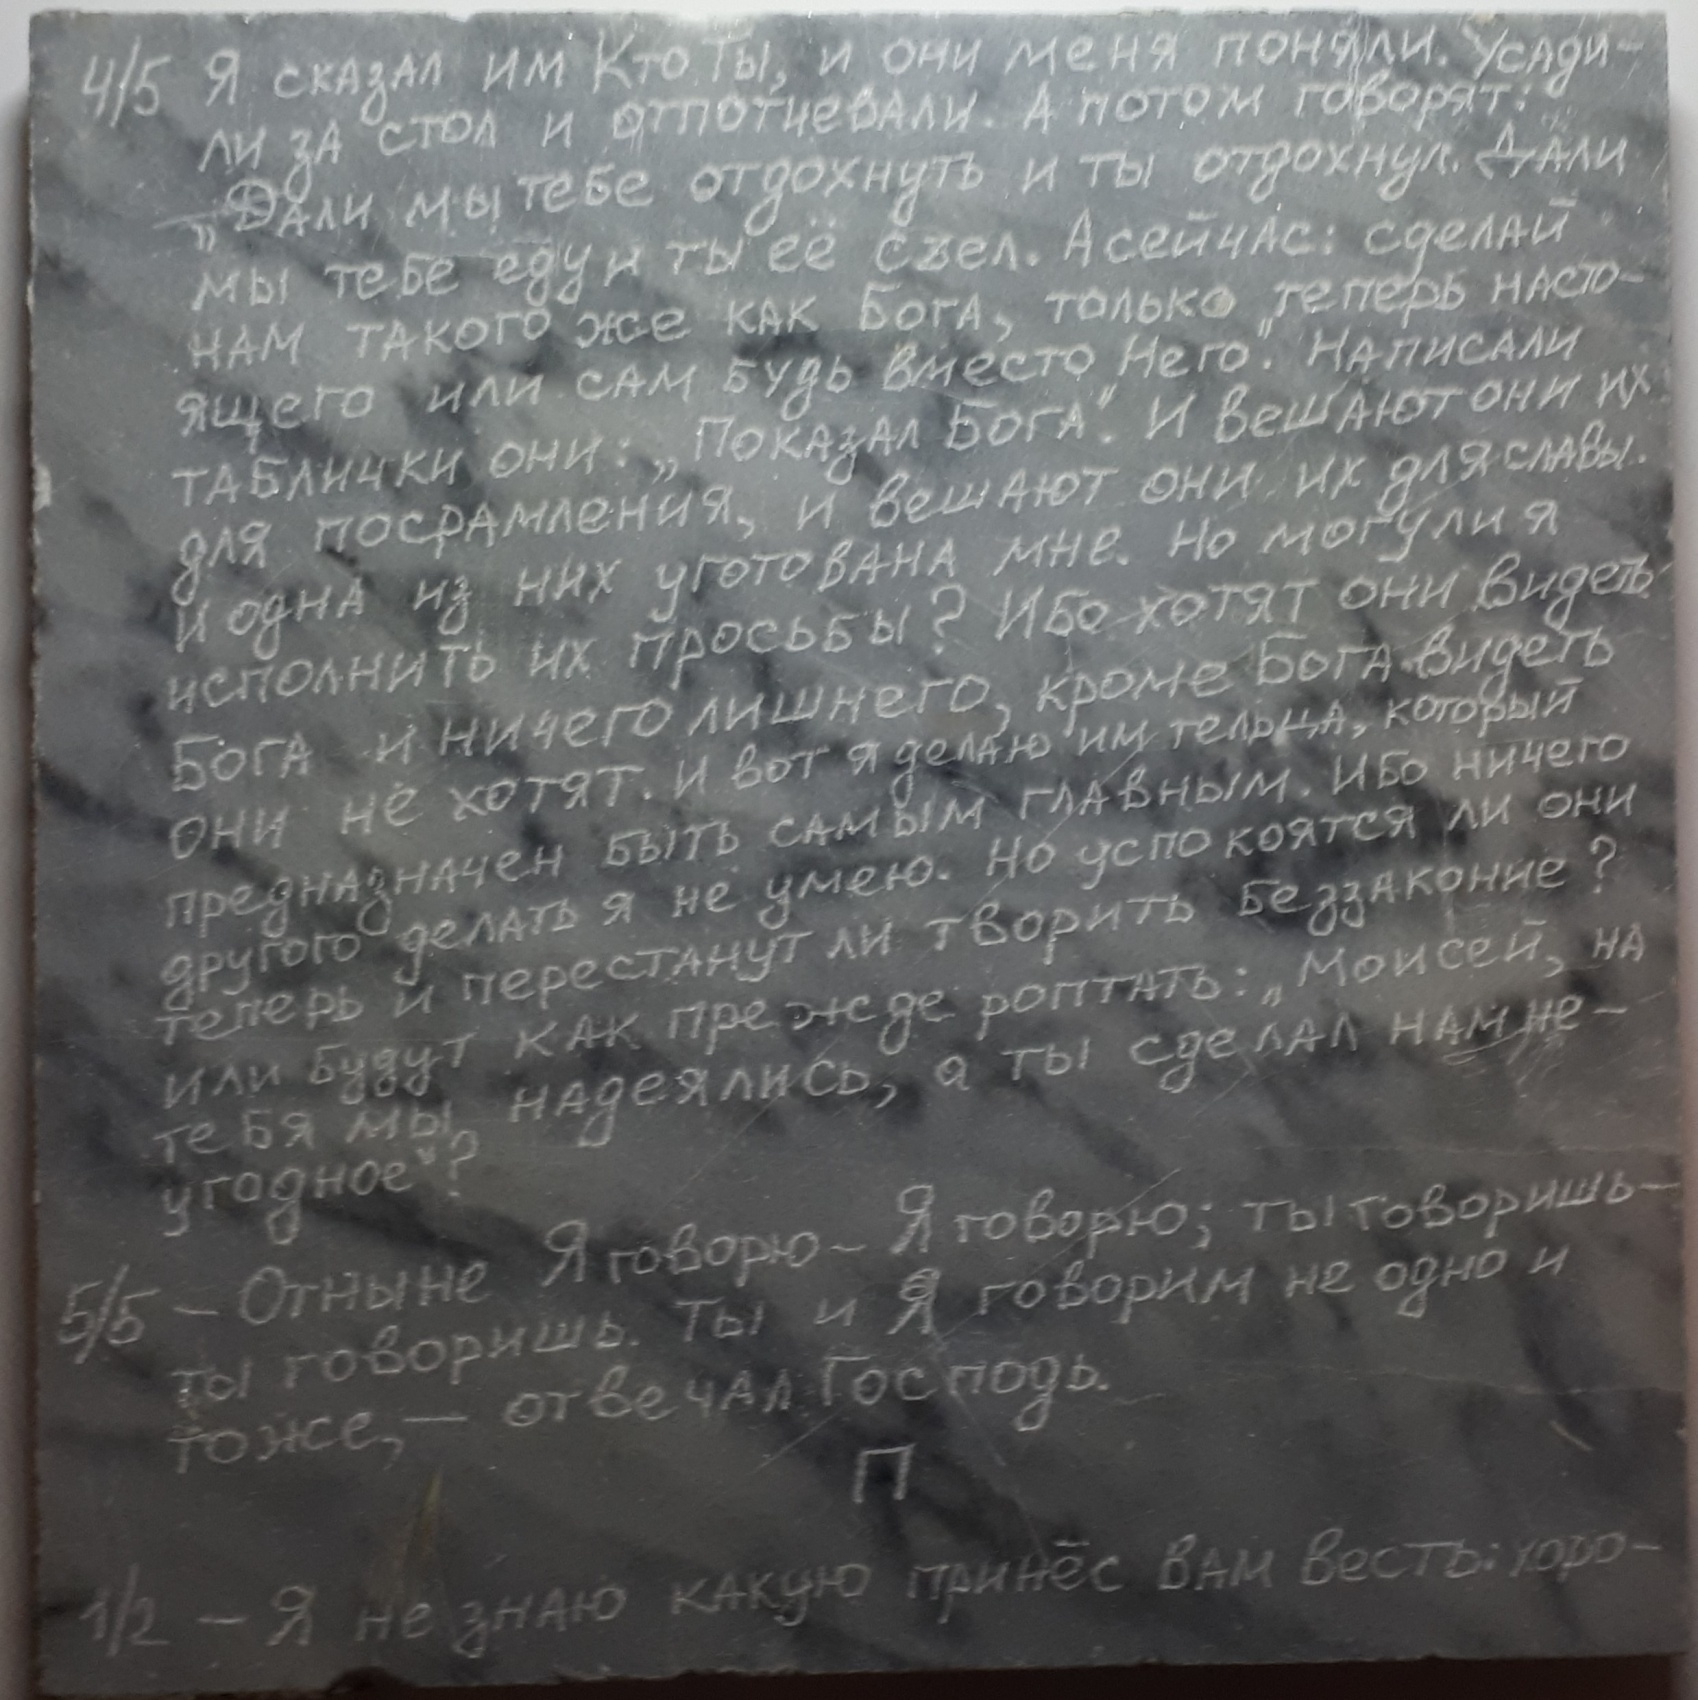 4/5 Я сказал им Кто Ты, и они меня поняли. Усади-
ли за стол и отпотчевали. А потом говорят:
„Дали мы тебе отдохнуть и ты отдохнул. Дали
мы тебе еду и ты её съел. А сейчас: сделай
нам такого же как Бога, только теперь насто-
ящего или сам будь вместо Него." Написали
таблички они: „Показал Бога". И вешают они их
для посрамления, и вешают они их для славы.
и одна из них уготована мне. Но могу ли я
исполнить их просьбы? Ибо хотят они видеть
Бога и ничего лишнего, кроме Бога видеть
они не хотят. И вот я делаю им тельца, который
предназначен быть самым главным. Ибо ничего
другого делать я не умею. Но успокоятся ли они
теперь и перестанут ли творить беззаконие?
или будут как прежде роптать: „Моисей, на
тебя мы надеялись, а ты сделал нам не-
угодное"?
5/5 – Отныне Я говорю – Я говорю; ты говоришь –
ты говоришь. Ты и Я говорим не одно и
тоже, – отвечал Господь.
П
1/2 – Я не знаю какую принёс вам весть: хоро-